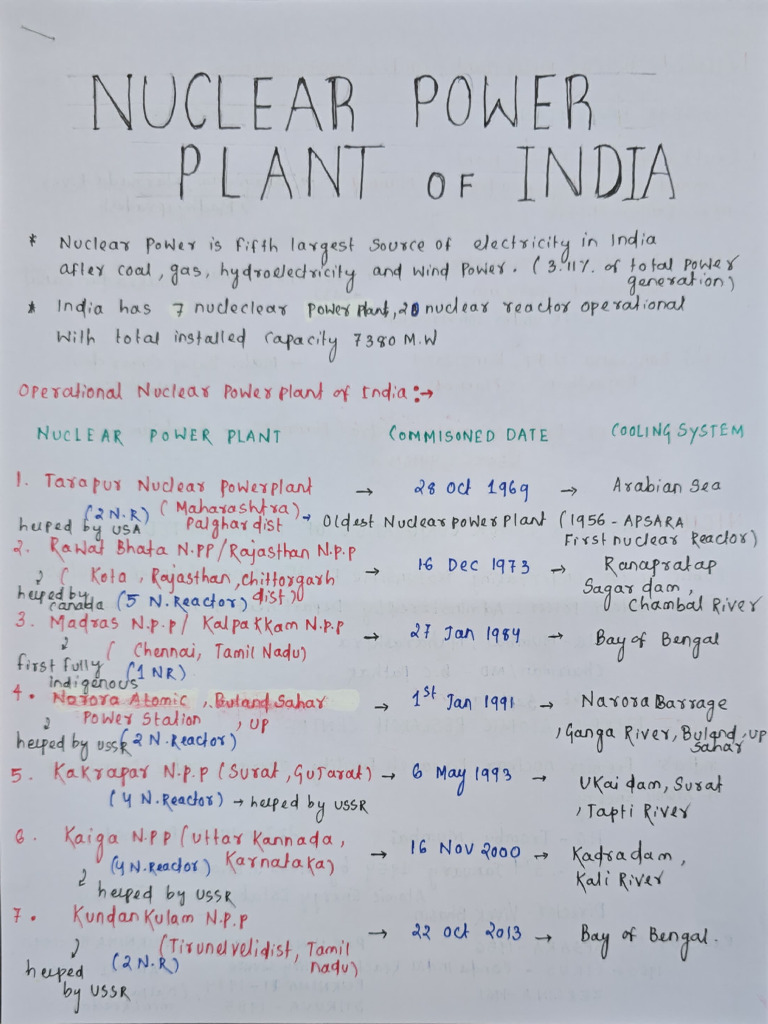 NUCLEAR POWER
PLANT OF INDIA
* Nuclear Power is fifth largest source of electricity in India
after coal, gas, hydroelectricity and wind power. (3.11% of total power
generation)
* India has 7 nucleclear power plant, 20 nuclear reactor operational
With total installed capacity 7380 M.W
Operational Nuclear Power plant of India :→
NUCLEAR POWER PLANT COMMISONED DATE COOLING SYSTEM
1. Tarapur Nuclear Powerplant → 28 Oct 1969 → Arabian Sea
(2 N.R) (Maharashtra)
helped by USA Palghar dist → Oldest Nuclear power plant (1956 - APSARA
First nuclear Reactor)
2. Rawat Bhata N.PP/Rajasthan N.p.p → 16 Dec 1973 → Ranapratap
( Kota, Rajasthan, Chittorgarh Sagar dam,
helped by canada (5 N.Reactor) dist) Chambal River
3. Madras N.p.p/ Kalpakkam N.p.p → 27 Jan 1984 → Bay of Bengal
( Chennai, Tamil Nadu)
first fully (1 NR)
indigenous
4. Narora Atomic, Buland Sahar → 1st Jan 1991 → Narora Barrage
Power Station, UP , Ganga River, Buland Sahar, UP
helped by USSR (2 N.Reactor)
5. Kakrapar N.p.p (Surat, Gujarat) → 6 May 1993 → Ukai dam, Surat
(4 N.Reactor) → helped by USSR , Tapti River
6. Kaiga N.PP (Uttar Kannada, → 16 Nov 2000 → Kadra dam,
(4 N.Reactor) Karnataka) Kali River
helped by USSR
7. Kundan Kulam N.p.p → 22 Oct 2013 → Bay of Bengal.
(Tirunelveli dist, Tamil
(2 N.R) nadu)
helped
by USSR